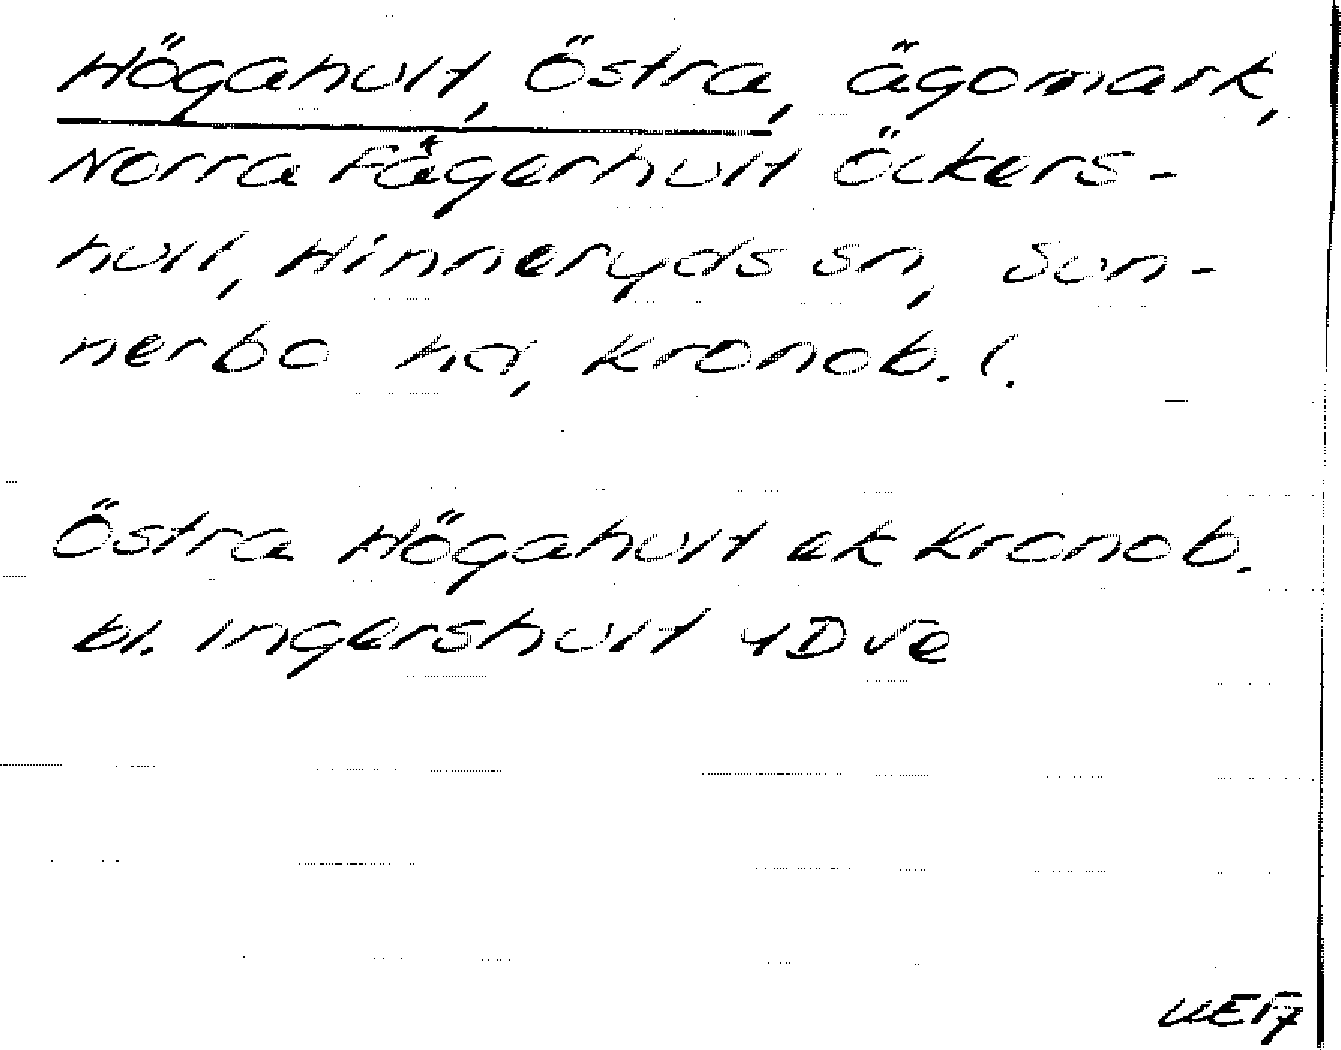 Högahult, Östra, ägomark,
Norra Fägerhult Öckers-
hult, Hinneryds sn, Sun-
nerbo hd, Kronob. l.
Östra Högahult ek Kronob.
bl. Ingershult 4D ve